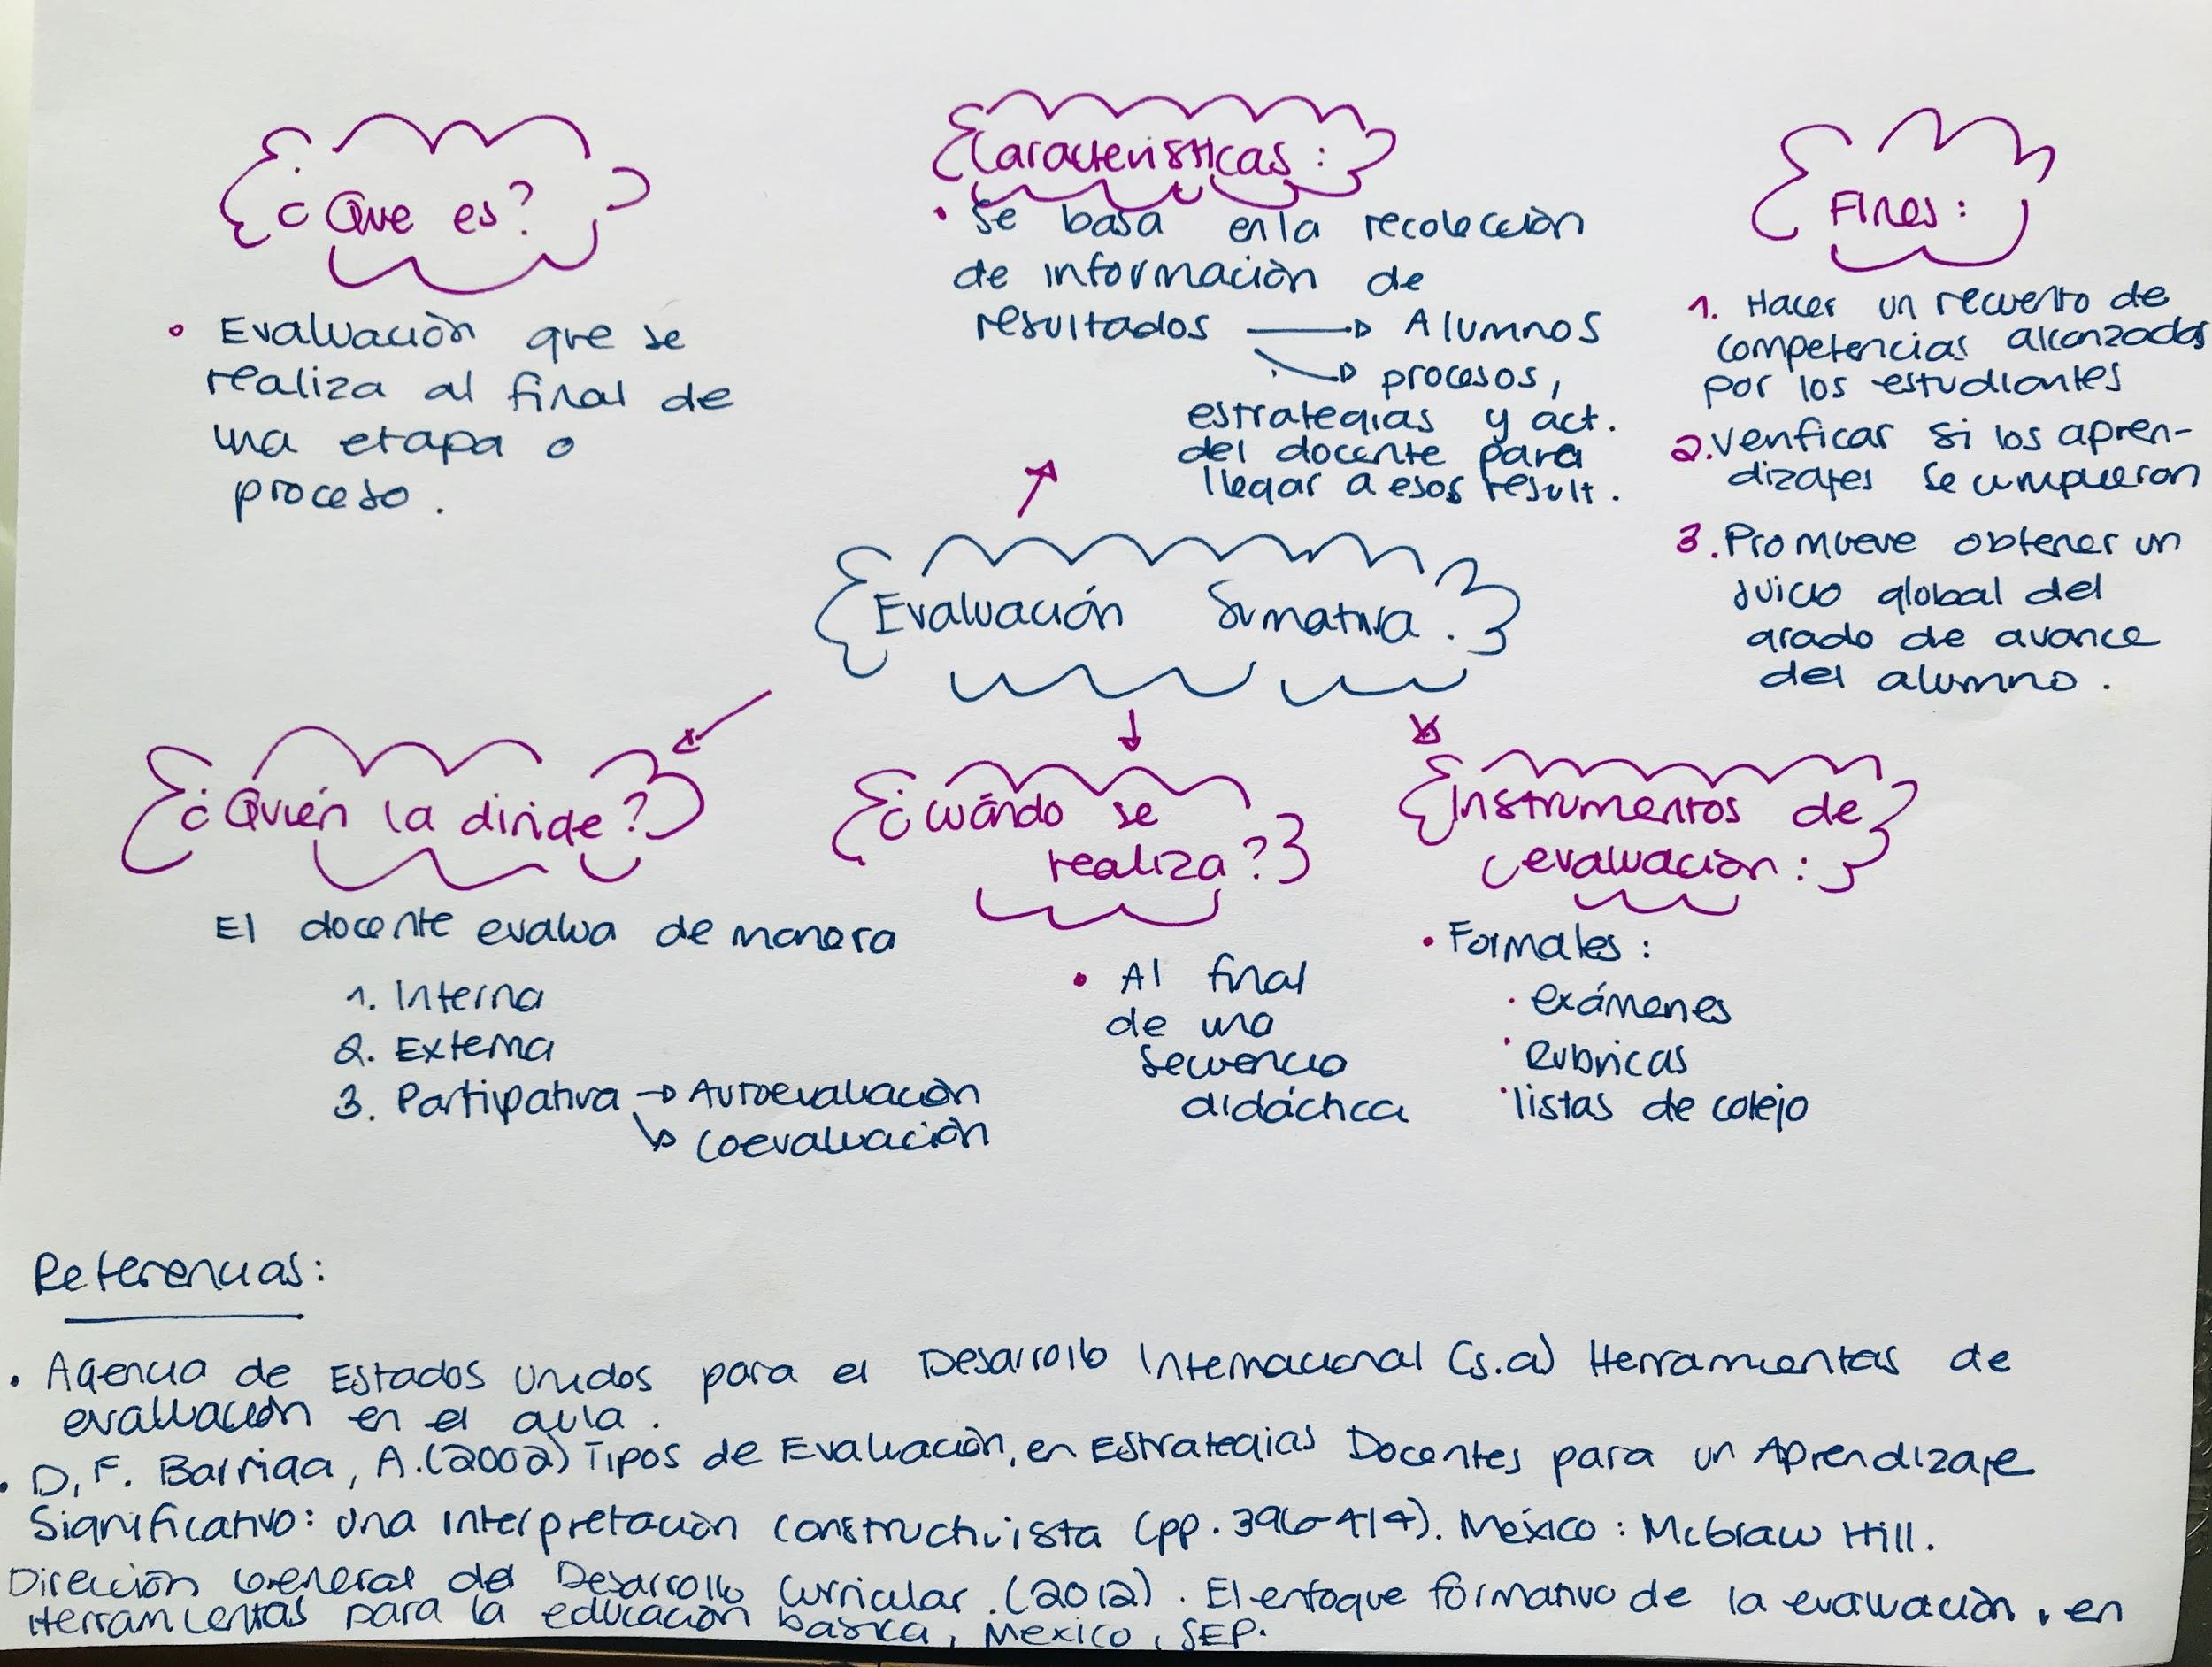 ¿Que es?
• Evaluaciòn que se
realiza al final de
una etapa o
proceso.
Caracteristicas:
• Se basa en la recolecciòn
de informaciòn de
resultados → Alumnos
→ procesos,
estrategias y act.
del docente para
llegar a esos result.
Fines:
1. Hacer un recuento de
competencias alcanzadas
por los estudiantes
2. Verificar si los apren-
dizajes se cumplieron
3. Promueve obtener un
Juicio global del
grado de avance
del alumno.
Evaluación Sumativa.
¿Quién la dirige?
El docente evalua de manera
1. Interna
2. Externa
3. Partipativa → Autoevaluaciòn
↳ Coevaluaciòn
¿Cuándo se
realiza?
• Al final
de una
Secuencia
didáctica
Instrumentos de
evaluaciòn:
• Formales:
• exámenes
• Rubricas
• listas de cotejo
Referencias:
• Agencia de Estados Unidos para el Desarrollo Internacional (s.a) Herramientas de
evaluacion en el aula.
• D, F. Barriga, A. (2002) Tipos de Evaluaciòn, en Estrategias Docentes para un Aprendizaje
Significativo: Una interpretaciòn constructivista (pp. 396-414). México: McGraw Hill.
Direcciòn General del Desarrollo Curricular. (2012). El enfoque formativo de la evaluaciòn, en
Herramientas para la educaciòn basica, Mexico, SEP.